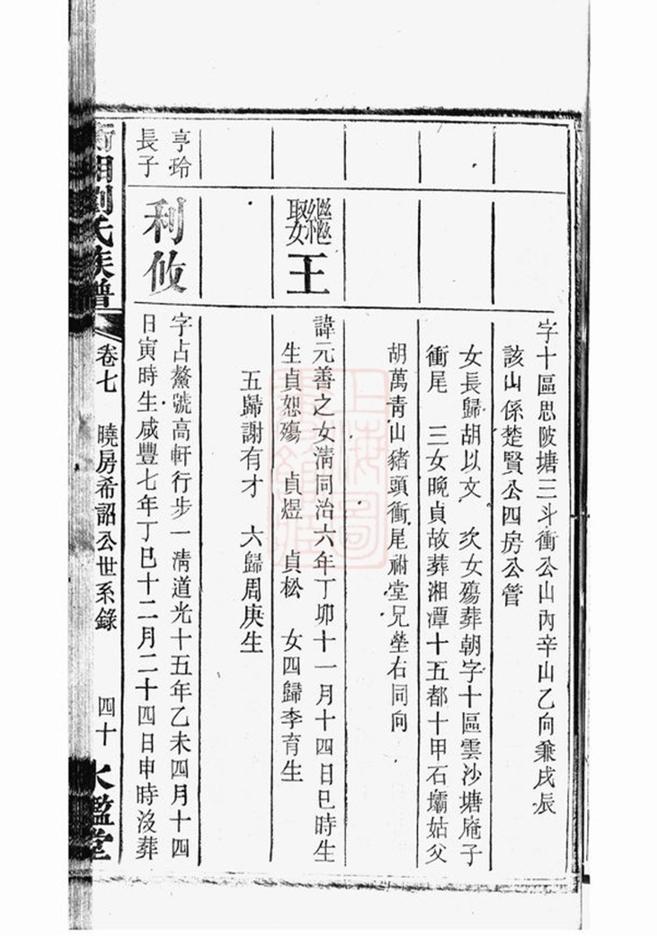 字十區思陂塘三斗衝公山內辛山乙向兼戌辰
該山係楚賢公四房公管
女長歸胡以文　次女殤葬朝字十區雲沙塘庵子
衝尾　三女晚貞故葬湘潭十五都十甲石壩姑父
胡萬青山豬頭衝尾祔堂兄塋右同向
繼娶王
諱元善之女清同治六年丁卯十一月十四日巳時生
生貞恕殤　貞煜　貞松　女四歸李育生
五歸謝有才　六歸周庚生
亨玲長子
利攸
字占鰲號高軒行步一清道光十五年乙未四月十四
日寅時生咸豐七年丁巳十二月二十四日申時沒葬
衡湘劉氏族譜　卷七　曉房希詔公世系錄　四十　水鑑堂